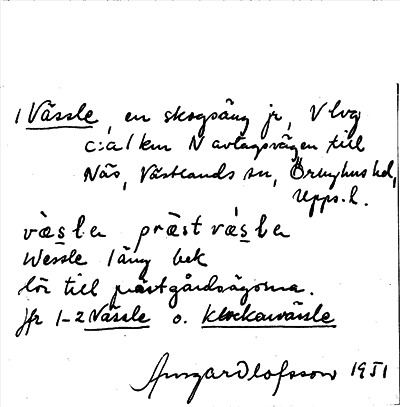 1 Vässle, en skogsäng jr, V lvg
c:a 1 km N avtagsvägen till
Näs, Västlands sn, Örbyhus hd,
Upps. l.
vä̀sḷa prä̀stvä́sḷa
Wessle läng bek
lör till prästgårdsägorna.
Jfr 1-2 Vässle o. Klockarvässle
Olofsson 1951